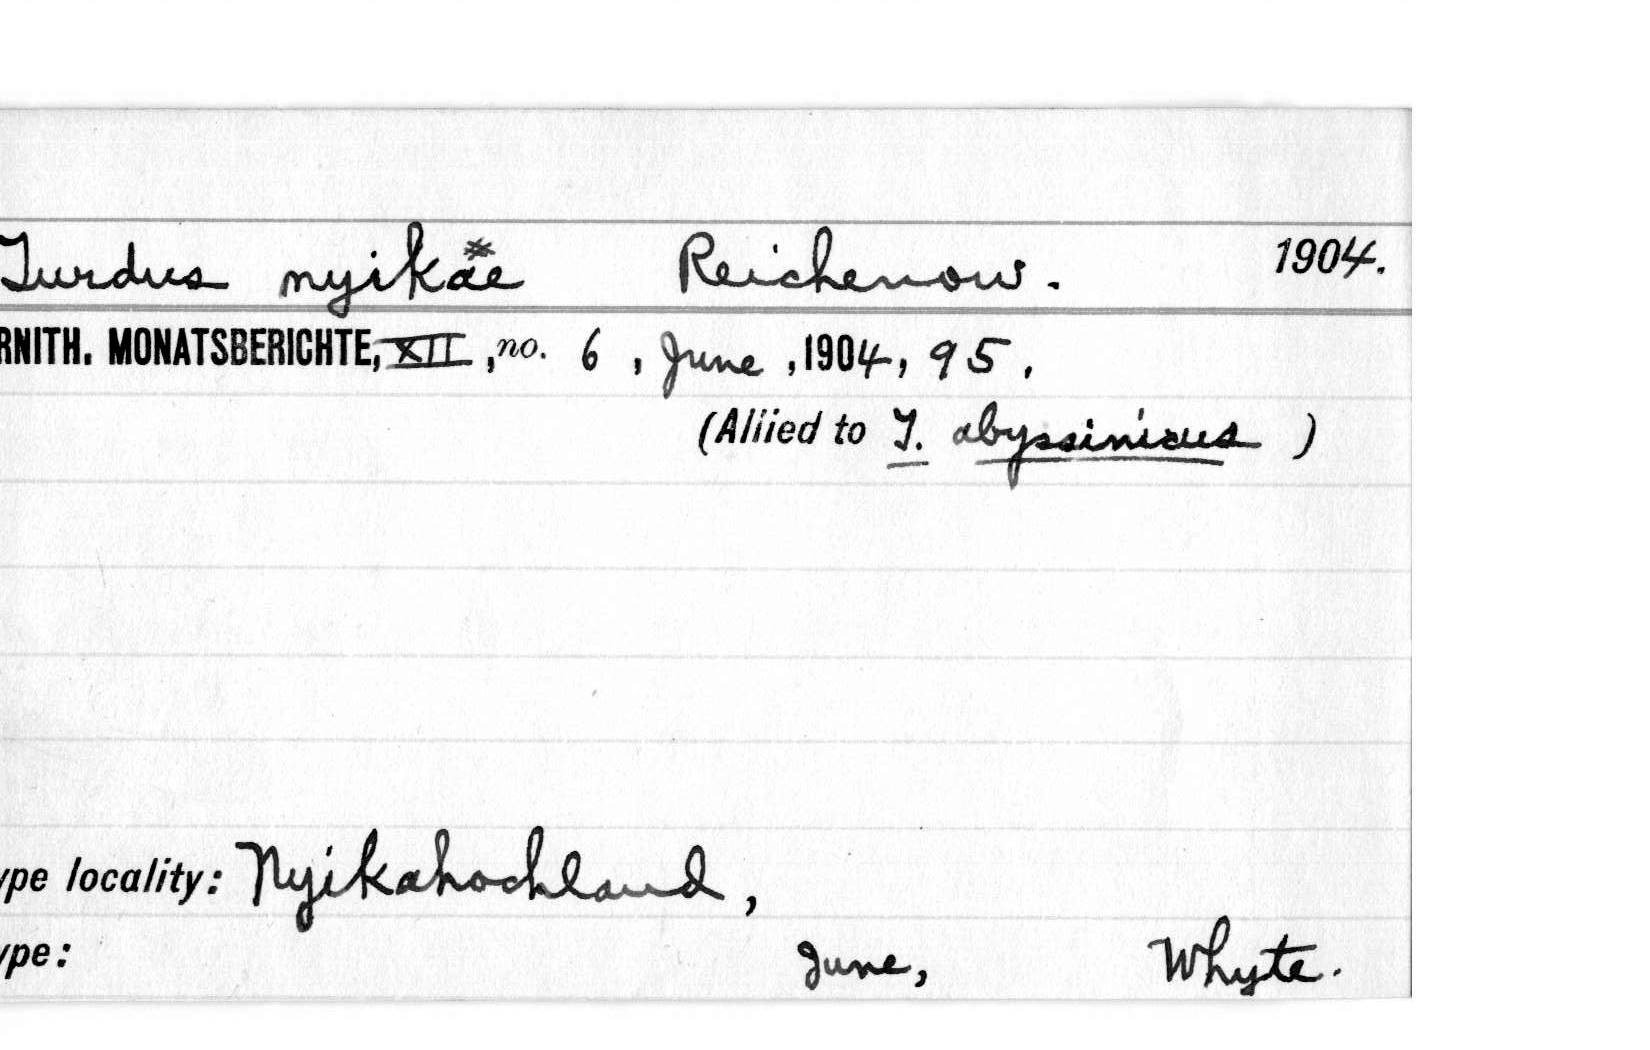 Turdus nyikae Reichenow. 1904.
RNITH. MONATSBERICHTE, XII, no. 6, June, 1904, 95.
(Allied to T. abyssinicus )
ype locality: Nyikahochland,
ype: June, Whyte.